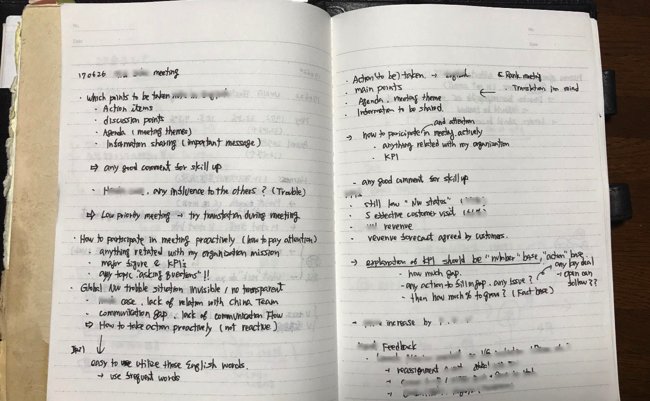 170626 meeting
· Which points to be taken
· Action items
· discussion points
· Agenda (meeting themes)
· Information sharing (important message)
⇒ any good comment for skill up
· any influence to the others? (Trouble)
⇒ Low priority meeting → try translation during meeting.
· How to participate in meeting proactively (how to pay attention)
· anything related with my organization mission
· major figure & KPI's
· any topic "asking questions"!!
Global NW trouble situation invisible / no transparent
case. lack of relation with China Team
· communication gap. lack of communication flow
⇒ How to take action proactively (not reactive)
↓
easy to use utilize those English words.
→ use frequent words
· Action (to be) taken. →
· main points
· Agenda. meeting theme
· Information to be shared.
Rank meeting
← · Translation in mind
and attention
→ how to participate in meeting actively
· anything related with my organization
· KPI
- any good comment for skill up
· still low "NW status" (
· 5 effective customer visit (
· revenue
· revenue forecast agreed by customers.
→ explanation of KPI should be "number" base, "action" base
- how much gap.
- any action to fill in gap. any issue?
- then how much % to grow? (Fact base)
any big deal
→ open can
follow??
→ increase by
Feedback
→ reassignment